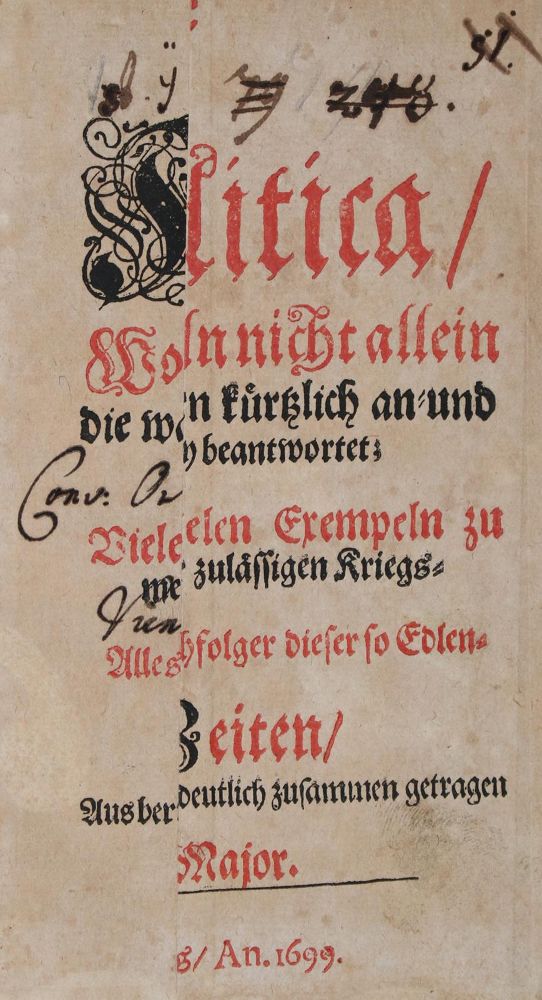 litica/
Wo ln nicht allein
die wo n kürtzlich an-und
y beantwortet;
Conv.
Viele elen Exempeln zu
me zulässigen Kriegs-
Alles hfolger dieser so Edlen-
Zeiten/
Aus ber deutlich zusammen getragen
Major.
s/ An. 1699.